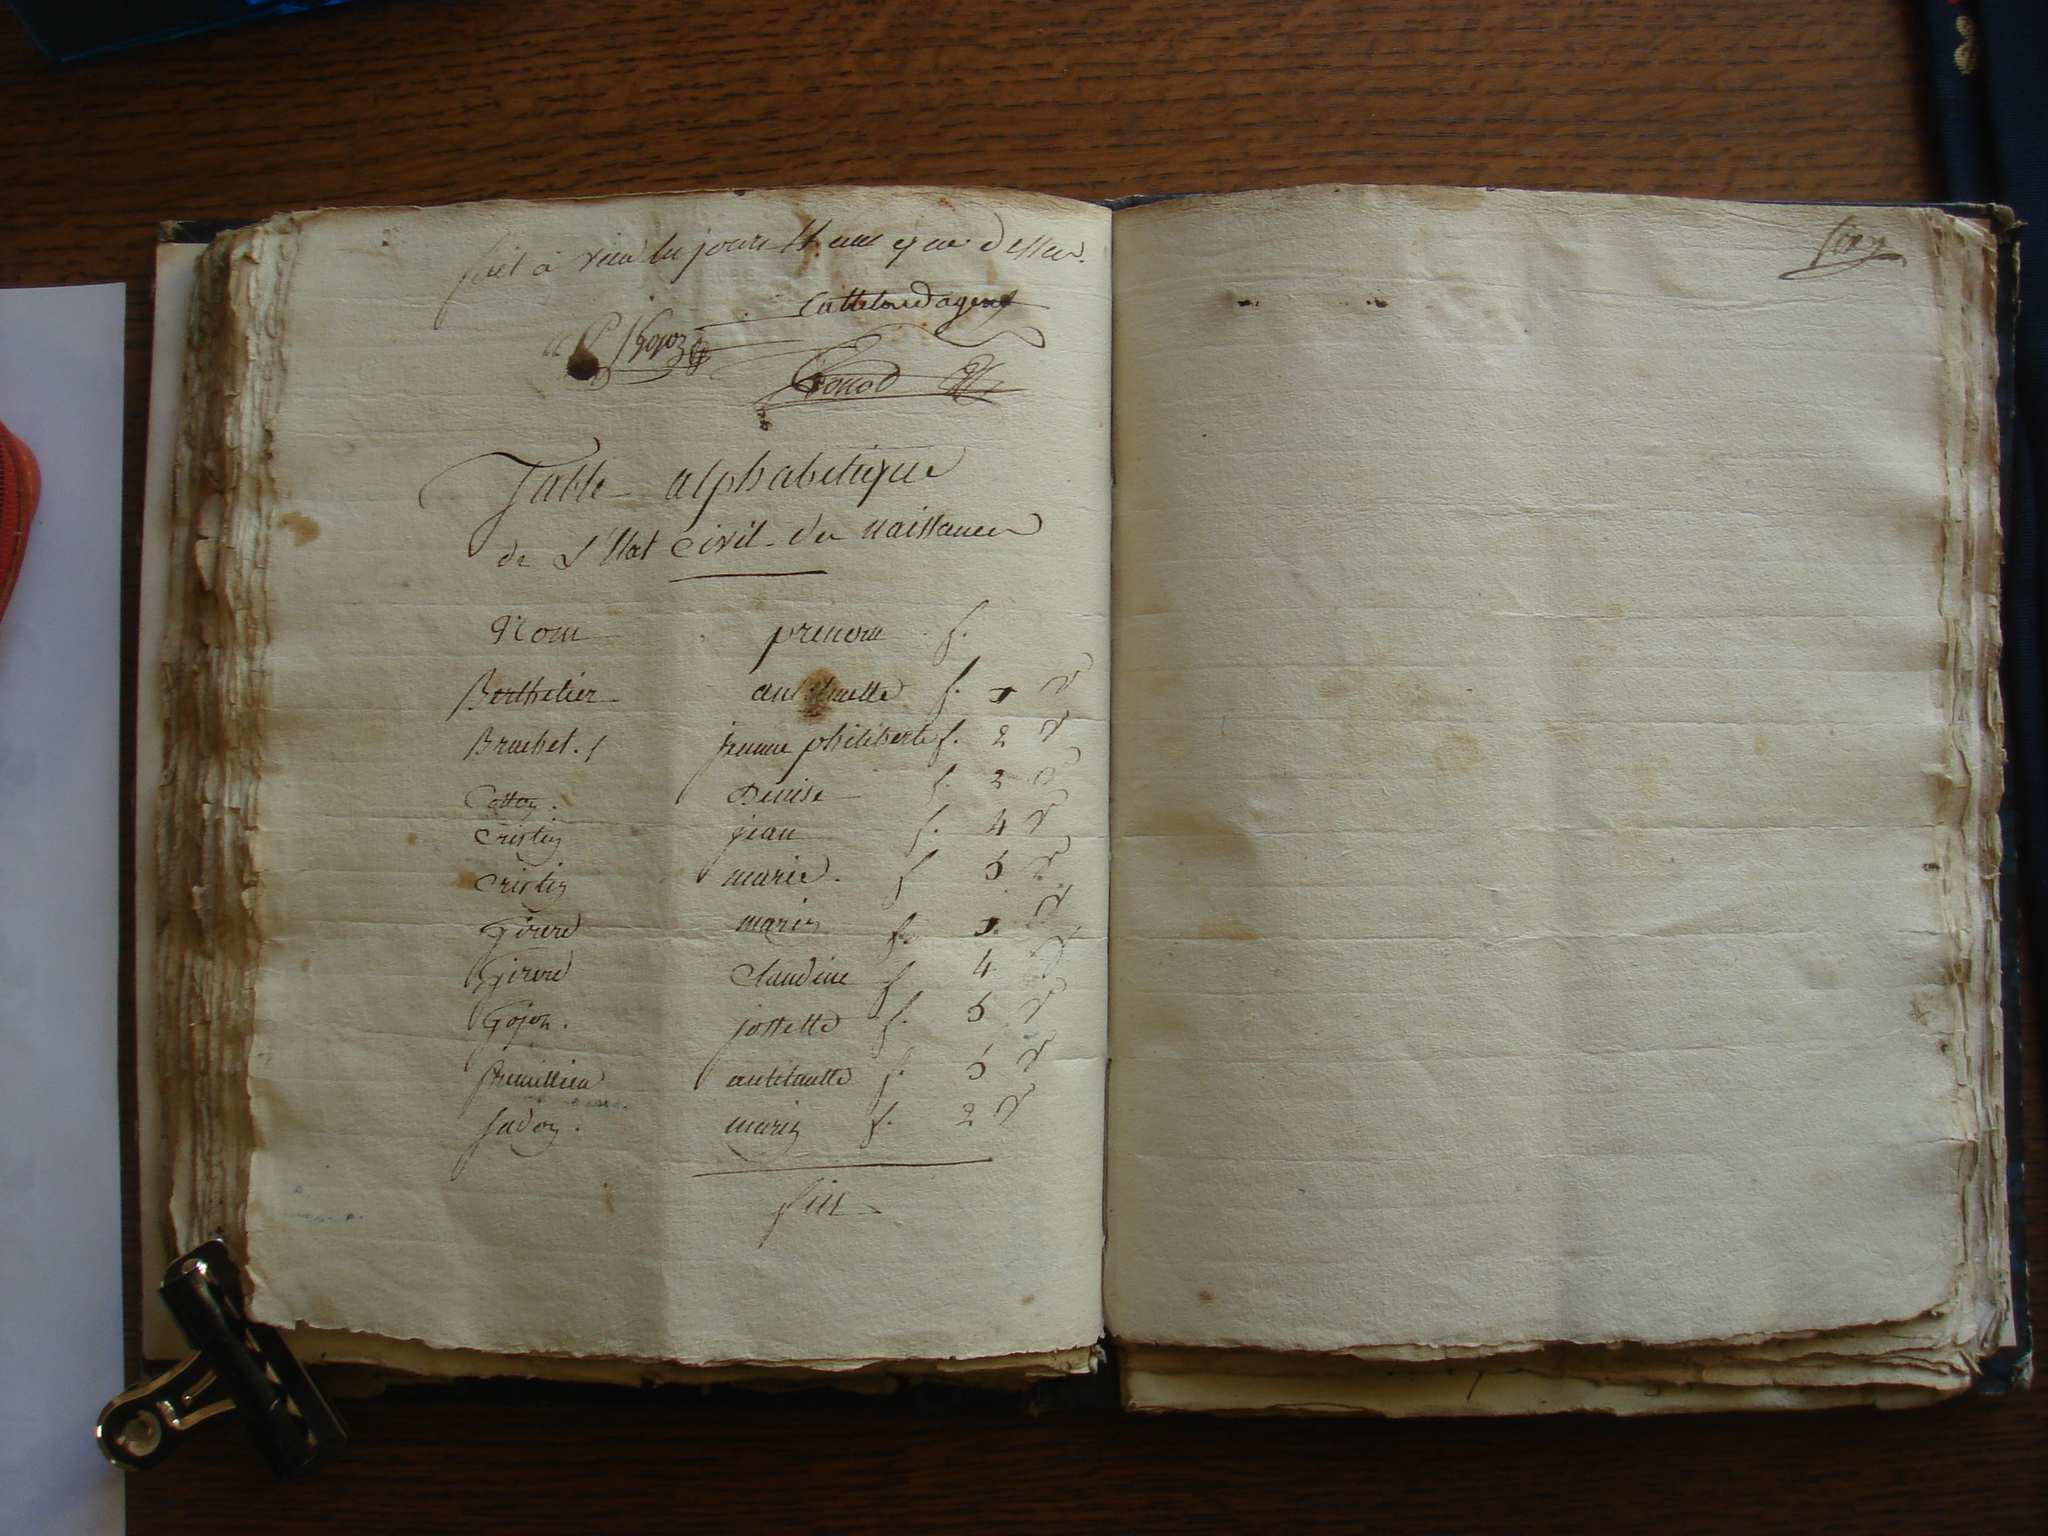 fait à rieu les jours & an que dessus.
Cattelond agent
Gojoz
Table alphabetique
de L'Etat Civil des naissances
Nom prenom f.
Berthelier antoinette f. 1 V
Bruchet. jeanne philiberte f. 2 V
Cottoz. Denise f. 2 V
Cristin jean f. 4 V
Cristin marie. f 5 V
Girerd marie f. 1. V
Girerd Claudine f 4 V
Gojon. josette f. 5 V
antoinette f. 5 V
Sadoz. marie f. 2 V
fin